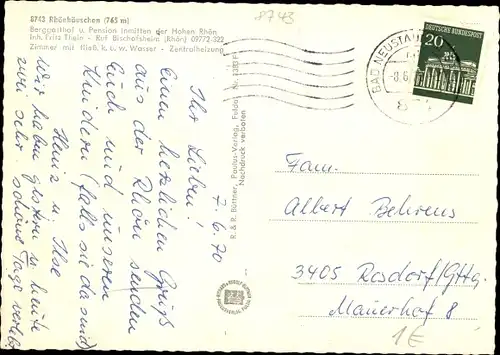 8743 Rhönhäuschen (765 m)
Berggasthof u. Pension inmitten der Hohen Rhön
Inh. Fritz Thein - Ruf Bischofsheim (Rhön) 09772-322
Zimmer mit fließ. k. u. w. Wasser - Zentralheizung
8743
BAD NEUSTADT
DEUTSCHE BUNDESPOST
20
R. & R. Büttner, Paulus-Verlag, Fulda
Nachdruck verboten
7.6.70
Ihr Lieben!
Einen herzlichen Gruß
aus der Rhön senden
Euch und unseren
Kindern (falls sie da sind)
Heinz u. Ilse
Wir haben gestern u. heute
zwei sehr schöne Tage verlebt
Fam.
Albert Behrens
3405 Rosdorf/Gttg.
Mauerhof 8
1€